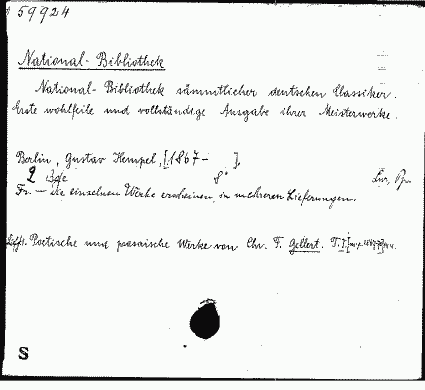 59924
National-Bibliothek
National-Bibliothek sämmtlicher deutschen Classiker.
Erste wohlfeile und vollständige Ausgabe ihrer Meisterwerke.
Berlin, Gustav Hempel, [1867- ],
2 Bde 8°
Fr. — die einzelnen Werke erscheinen in mehreren Lieferungen.
Poetische und prosaische Werke von Chr. F. Gellert. T. I.
S